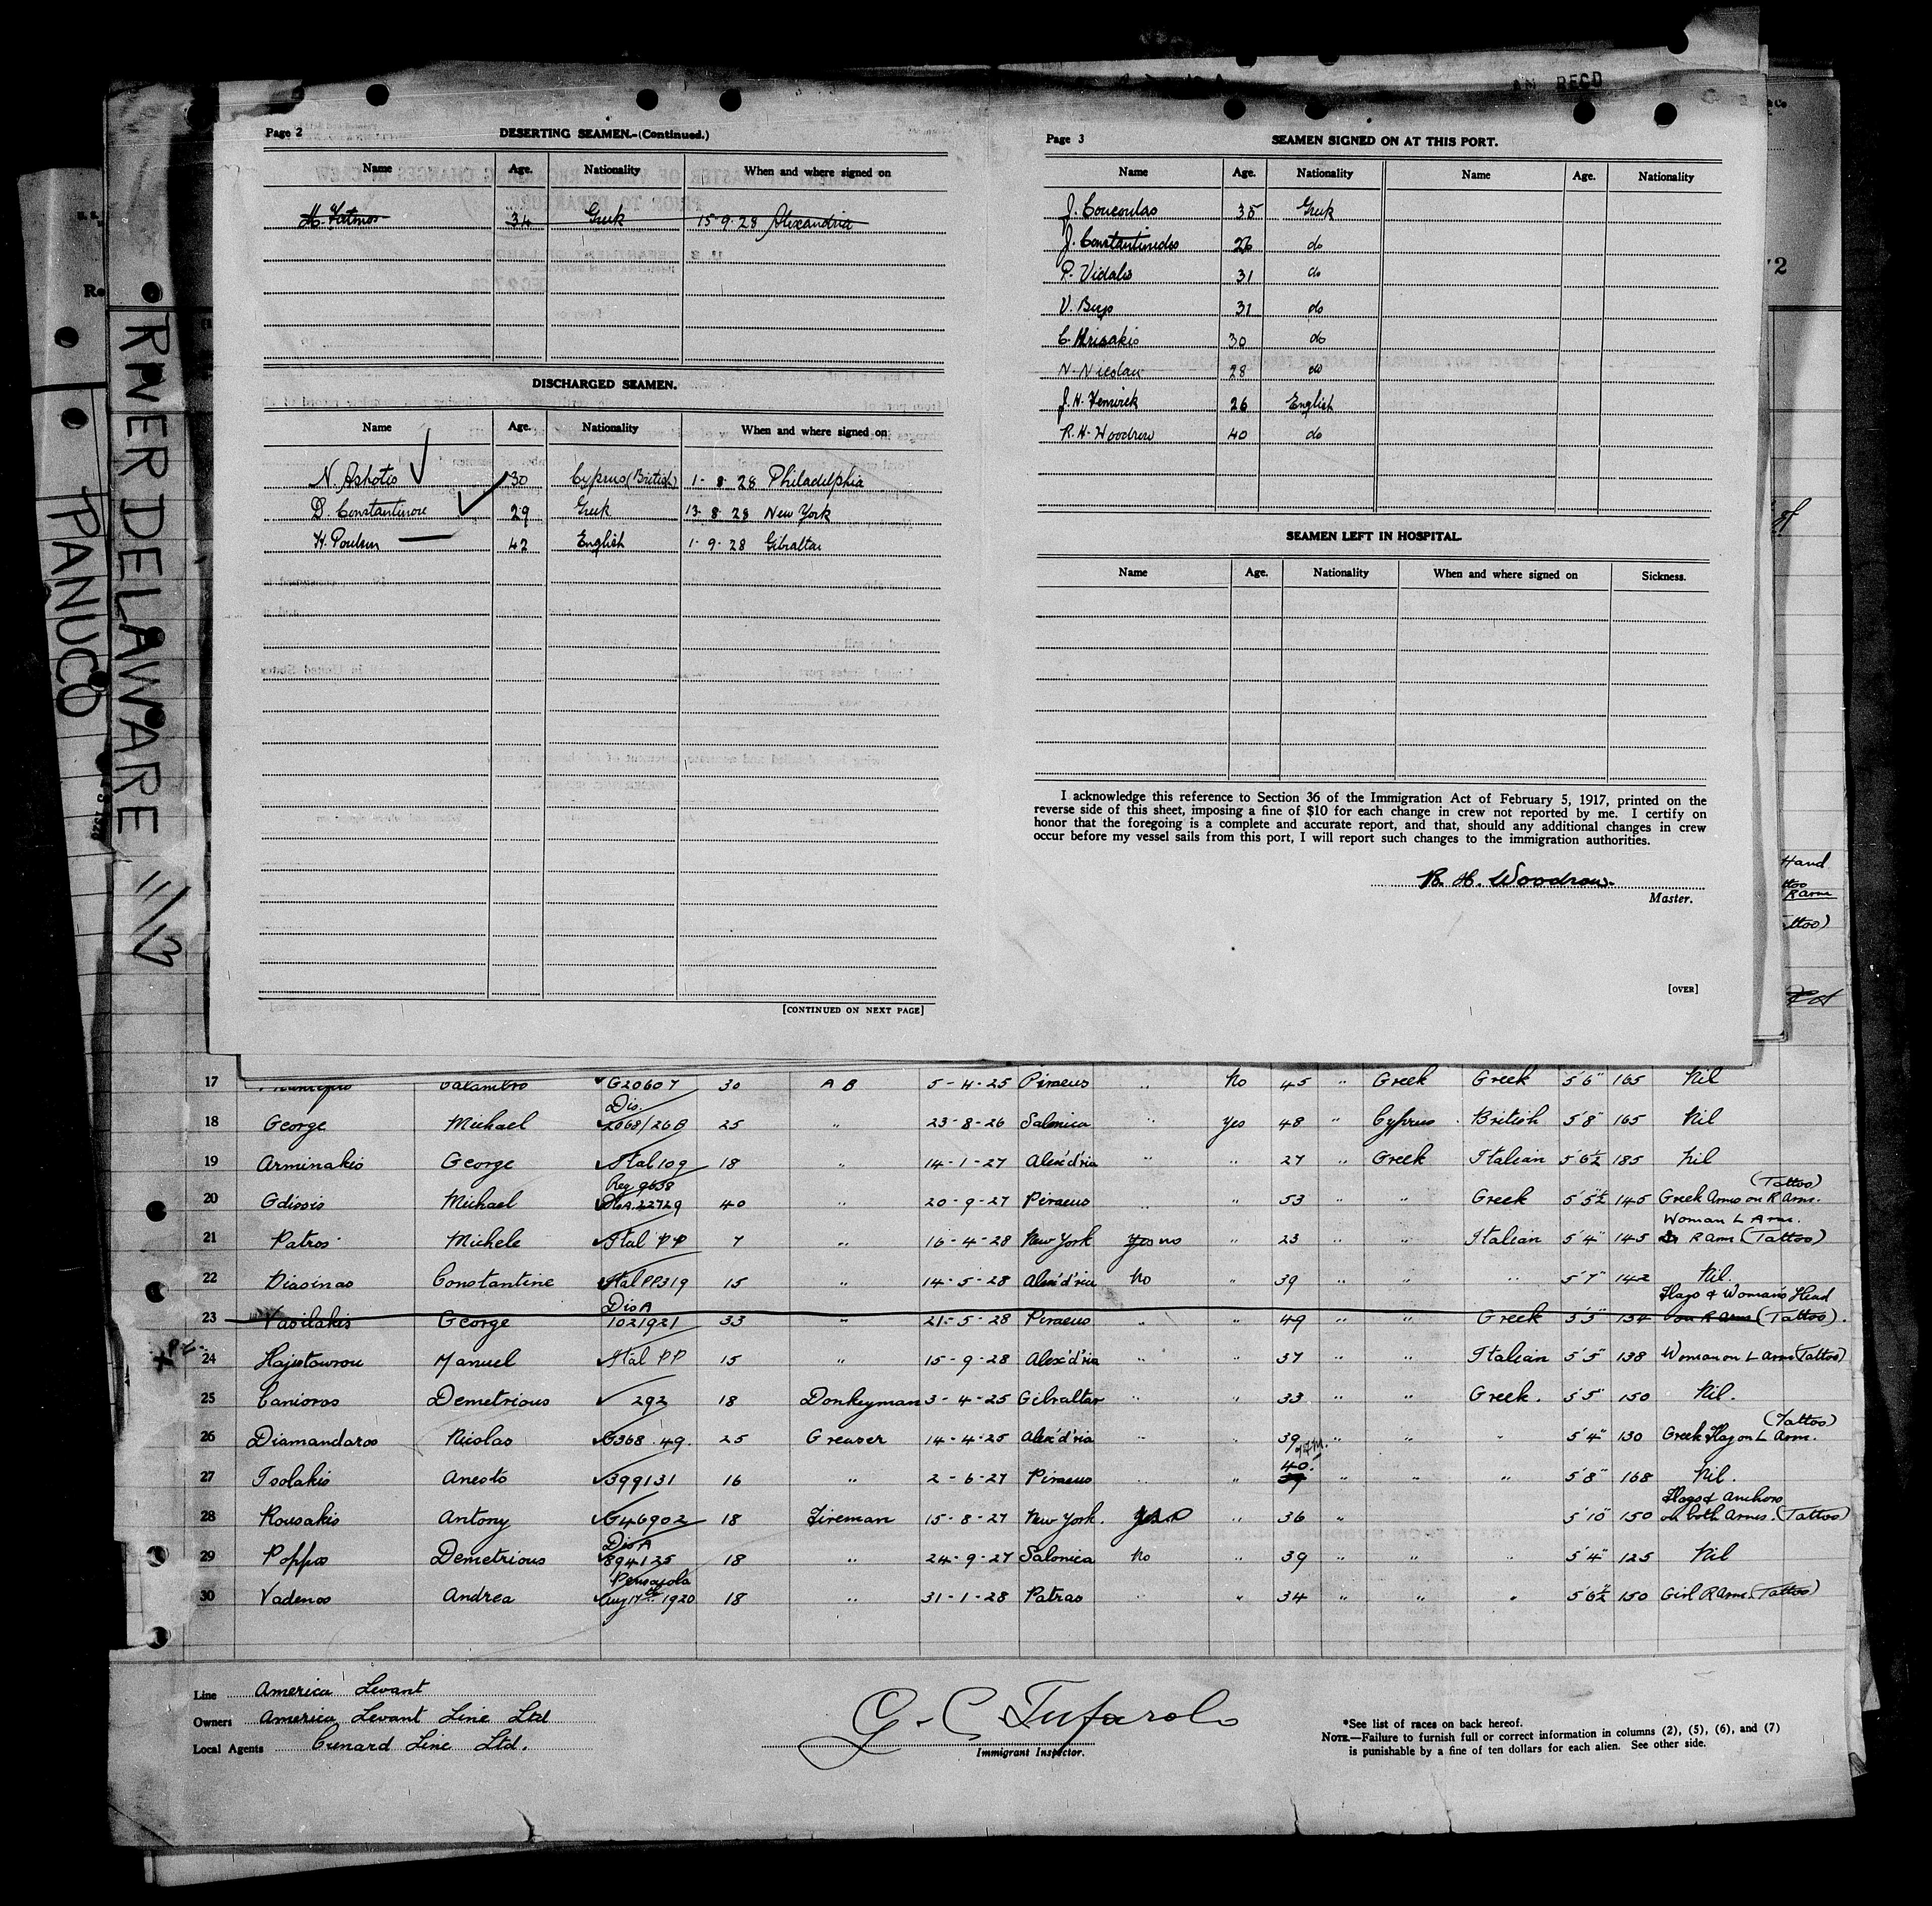 RIVER DELAWARE 11/13
PANUCO
Page 2 DESERTING SEAMEN.-(Continued.)
Name Age. Nationality When and where signed on
34 Greek 15-9-28 Alexandria
DISCHARGED SEAMEN.
Name Age. Nationality When and where signed on
N. Ashotis 30 Cyprus (British) 1-8-28 Philadelphia
D. Constantinou 29 Greek 13-8-28 New York
H. Poulson 42 English 1-9-28 Gibraltar
[CONTINUED ON NEXT PAGE]
REC'D
Page 3 SEAMEN SIGNED ON AT THIS PORT.
Name Age. Nationality Name Age. Nationality
J. Coucoulas 35 Greek
J. Constantinidis 26 do
P. Vidalis 31 do
V. 31 do
C. Hrisakis 30 do
N. Nicolau 28 do
J. H. Fenwick 26 English
R. H. Woodrow 40 do
SEAMEN LEFT IN HOSPITAL.
Name Age. Nationality When and where signed on Sickness.
I acknowledge this reference to Section 36 of the Immigration Act of February 5, 1917, printed on the
reverse side of this sheet, imposing a fine of $10 for each change in crew not reported by me. I certify on
honor that the foregoing is a complete and accurate report, and that, should any additional changes in crew
occur before my vessel sails from this port, I will report such changes to the immigration authorities.
R. H. Woodrow.
Master.
[OVER]
Hand
R Arm
17 G20607 30 A B 5-4-25 Piraeus " No 45 " Greek Greek 5'6" 165 Nil
Dis.
18 George Michael 2068/26B 25 " 23-8-26 Salonica " Yes 48 " Cyprus British 5'8" 165 Nil
19 Arminakis George Ital 109 18 " 14-1-27 Alex'd'ria " " 27 " Greek Italian 5'6½ 185 Nil
Reg 9638 (Tattoo)
20 Gdissis Michael Dis A.22729 40 " 20-9-27 Piraeus " " 53 " " Greek 5'5½" 145 Greek Arms on R Arm.
Woman L Arm.
21 Patros Michele Ital PP 7 " 16-4-28 New York Yes no " 23 " " Italian 5'4" 145 R Arm (Tattoo)
22 Diasinos Constantine Ital PP319 15 " 14-5-28 Alex'd'ria No " 39 " " " 5'7" 142 Nil.
Dis A Flags & Woman's Head
23 Vasilakis George 1021921 33 " 21-5-28 Piraeus " " 49 " " Greek 5'5" 134 on R Arm (Tattoo).
24 Hajistavrou Manuel Ital PP 15 " 15-9-28 Alex'd'ria " " 37 " " Italian 5'5" 138 Woman on L Arm (Tattoo)
25 Canioros Demetrious 292 18 Donkeyman 3-4-25 Gibraltar " " 33 " " Greek. 5'5" 150 Nil.
(Tattoo)
26 Diamandaros Nicolas G368.49. 25 Greaser 14-4-25 Alex'd'ria " " 39 " " " 5'4" 130 Greek Flag on L Arm.
40.
27 Tsolakis Anesto 399131 16 " 2-6-27 Piraeus " " 39 " " " 5'8" 168 Nil.
Flags & Anchors
28 Rousakis Antony G46902 18 Fireman 15-8-27 New York. " 36 " 5'10" 150 on both Arms. (Tattoo)
Dis A
29 Poppos Demetrious 894125 18 " 24-9-27 Salonica No " 39 " " " 5'4" 125 Nil
Pensacola
30 Vadenos Andrea Aug 17th 1920 18 " 31-1-28 Patras " " 34 " " " 5'6½" 150 Girl R Arm (Tattoo)
Line America Levant
Owners America Levant Line Ltd
Local Agents Cunard Line Ltd.
G. C. Tufarolo
Immigrant Inspector.
*See list of races on back hereof.
NOTE.—Failure to furnish full or correct information in columns (2), (5), (6), and (7)
is punishable by a fine of ten dollars for each alien. See other side.